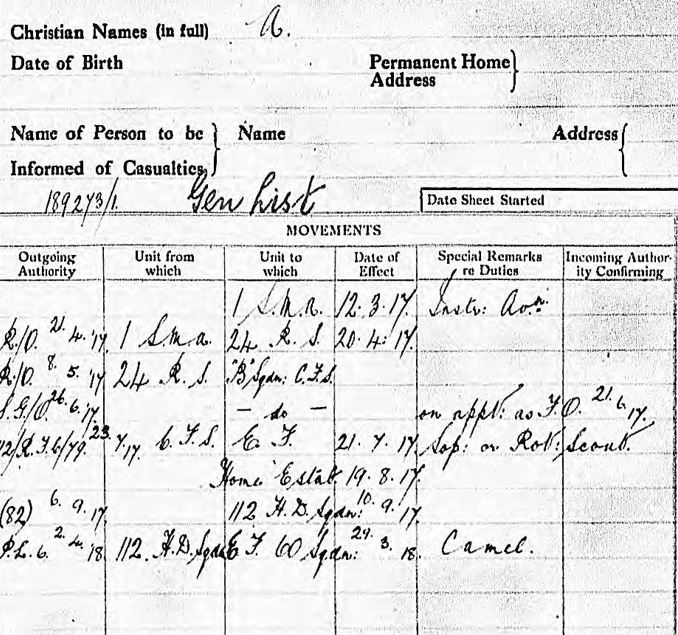 Christian Names (in full) A.
Date of Birth Permanent Home Address
Name of Person to be Informed of Casualties, Name Address
189273/1. Gen List Date Sheet Started
MOVEMENTS
Outgoing Authority Unit from which Unit to which Date of Effect Special Remarks re Duties Incoming Authority Confirming
1 S.M.A. 12.3.17. Instr: Avn.
R/O. 21.4.17 1 S.M.A. 24 R.S. 20.4.17.
R/O. 8.5.17 24 R.S. "B" Sqdn: C.F.S.
S.G/O. 26.6.17 — do — on appt: as F.O. 21.6.17.
12/R.F.6/79. 23.7.17 C.F.S. E.F. 21.7.17. Sop: or Rot: Scout.
Home Estab. 19.8.17.
(82) 6.9.17. 112 H.D. Sqdn: 10.9.17.
P.L.6. 2.4.18 112 H.D. Sqdn E.F. 60 Sqdn: 29.3.18. Camel.